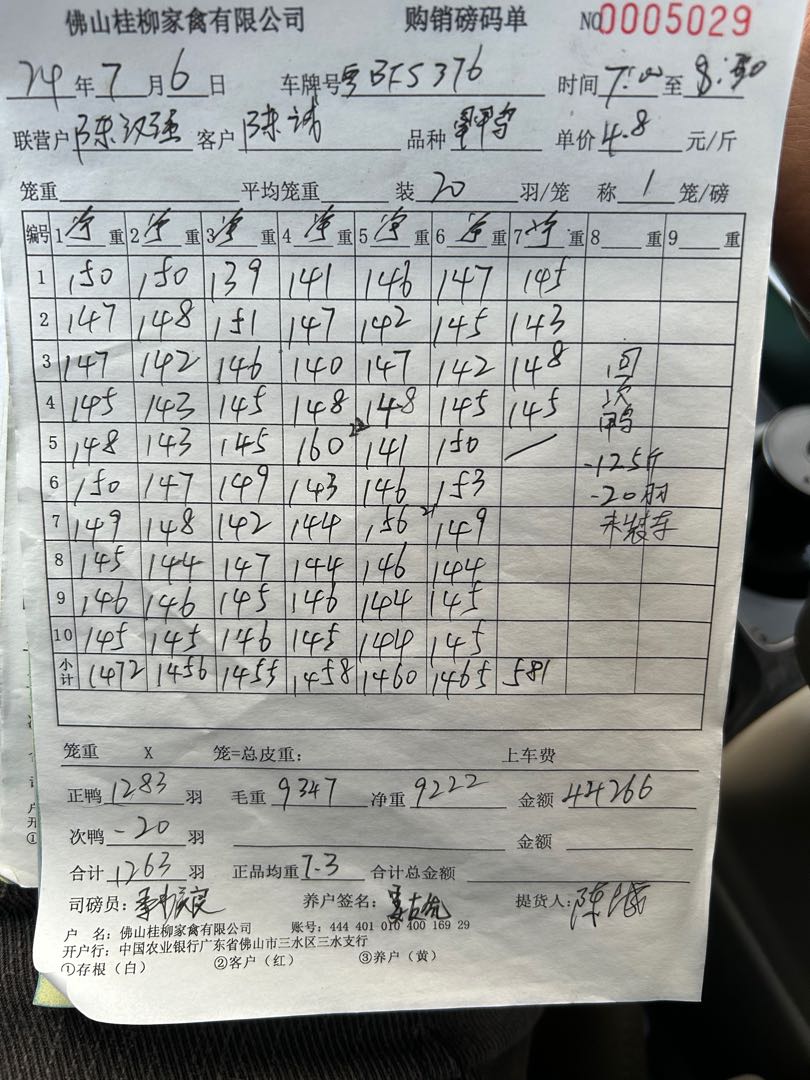 佛山桂柳家禽有限公司 购销磅码单 NO 0005029
24年7月6日 车牌号粤BFS376 时间7:00至8:30
联营户陈汉强 客户陈诚 品种 单价4.8元/斤
笼重 平均笼重 装20羽/笼 称1笼/磅
编号 1净重 2净重 3净重 4净重 5净重 6净重 7净重 8重 9重
1 150 150 139 141 146 147 145
2 147 148 151 147 142 145 143
3 147 142 146 140 147 142 148 回
4 145 143 145 148 148 145 145 次鸭
5 148 143 145 160 22 141 150 / -125斤
6 150 147 149 143 146 153 -20羽
7 149 148 142 144 156 21 149 未装车
8 145 144 147 144 146 144
9 146 146 145 146 144 145
10 145 145 146 145 144 145
小计 1472 1456 1455 1458 1460 1465 581
笼重 X 笼=总皮重: 上车费
正鸭1283羽 毛重9347 净重9222 金额44266
次鸭-20羽 金额
合计1263羽 正品均重7.3 合计总金额
司磅员: 养户签名: 提货人:陈诚
户 名: 佛山桂柳家禽有限公司 账号: 444 401 010 400 169 29
开户行: 中国农业银行广东省佛山市三水区三水支行
①存根(白) ②客户(红) ③养户(黄)